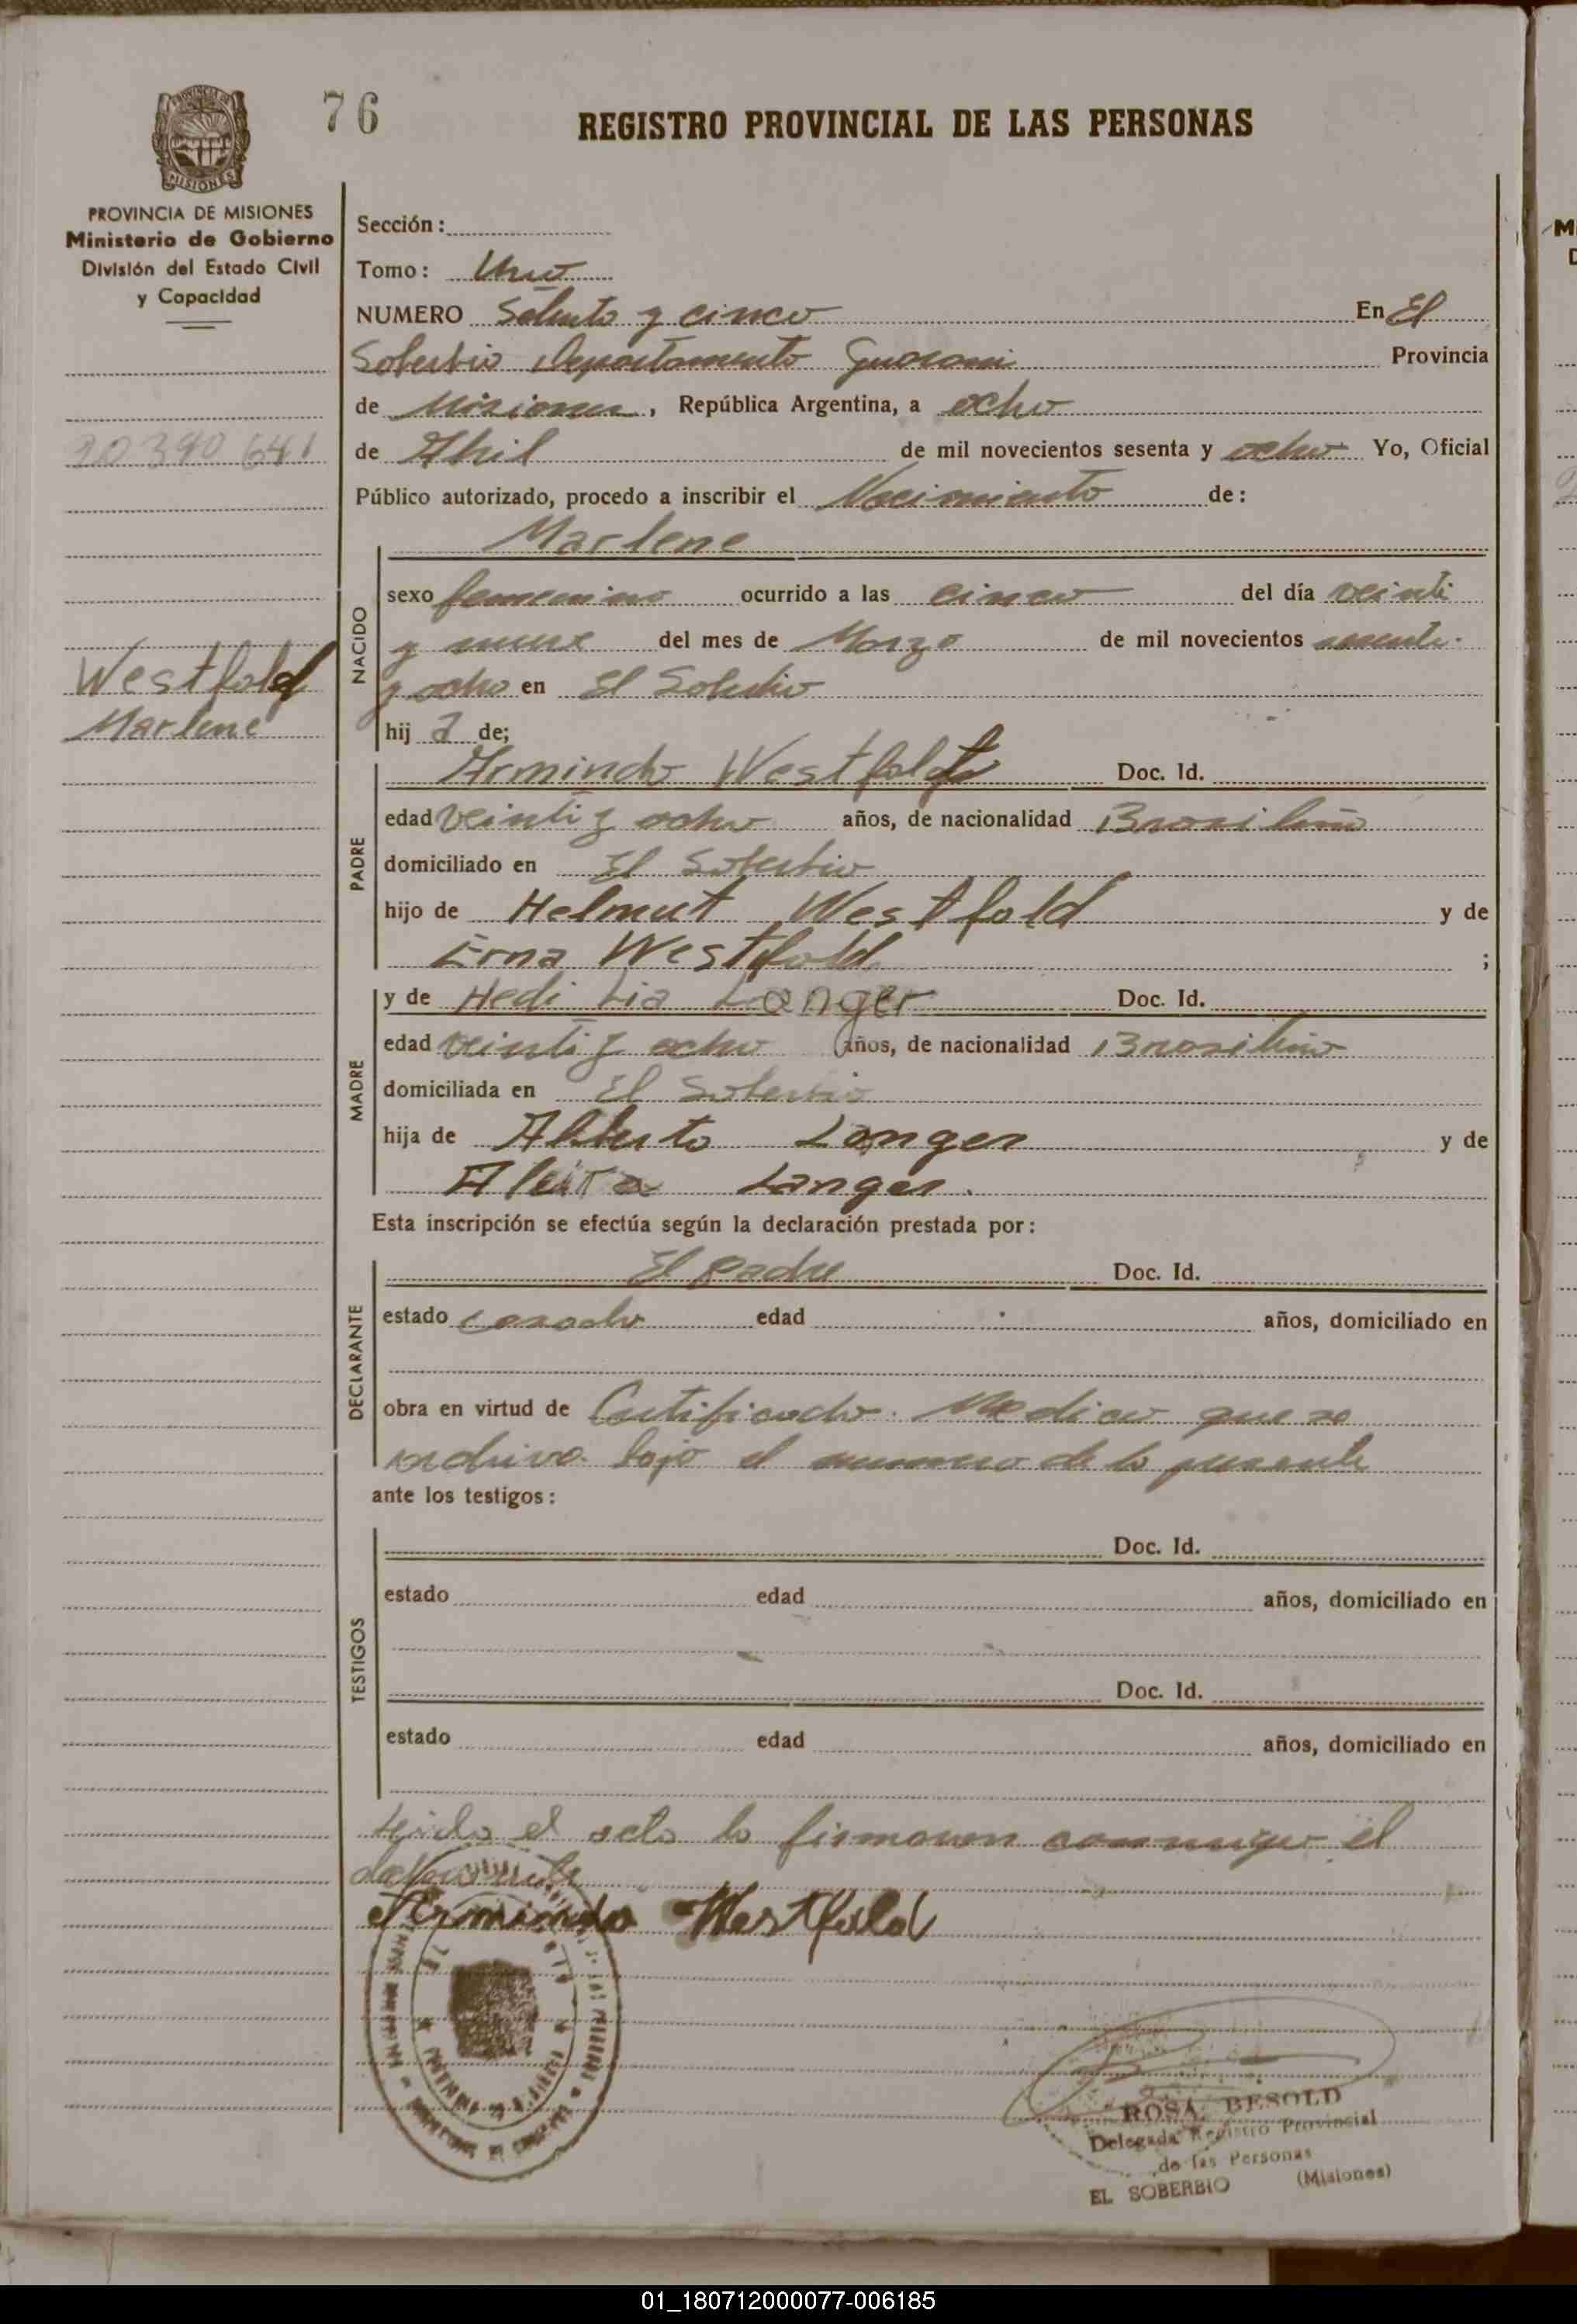 76
REGISTRO PROVINCIAL DE LAS PERSONAS
PROVINCIA DE
MISIONES
PROVINCIA DE MISIONES
Ministerio de Gobierno
División del Estado Civil
y Capacidad
Sección:
Tomo: Uno
NUMERO Setenta y cinco En El
Soberbio Departamento Guarani Provincia
de Misiones, República Argentina, a ocho
de Abril de mil novecientos sesenta y ocho Yo, Oficial
Público autorizado, procedo a inscribir el Nacimiento de:
Westfald
Marlene
NACIDO
Marlene
sexo femenino ocurrido a las cinco del día veinti
y nueve del mes de Marzo de mil novecientos sesenta
y ocho en El Soberbio
hij a de;
PADRE
Armindo Westfald Doc. Id.
edad veinti y ocho años, de nacionalidad Brasileño
domiciliado en El Soberbio
hijo de Helmut Westfald y de
Erna Westfald ;
MADRE
y de Hedi Lia Langer Doc. Id.
edad veinti y ocho años, de nacionalidad
domiciliada en El Soberbio
hija de Alberto Langer y de
Langer.
Esta inscripción se efectúa según la declaración prestada por:
DECLARANTE
El padre Doc. Id.
estado casado edad años, domiciliado en
obra en virtud de Certificado Medico que se
archiva bajo el numero de la presente
ante los testigos:
TESTIGOS
Doc. Id.
estado edad años, domiciliado en
Doc. Id.
estado edad años, domiciliado en
leida el acta la firmaron conmigo el
declarante
Armindo Westfald
ROSA BESOLD
Delegada Registro Provincial
de las Personas
EL SOBERBIO (Misiones)
01_180712000077-006185